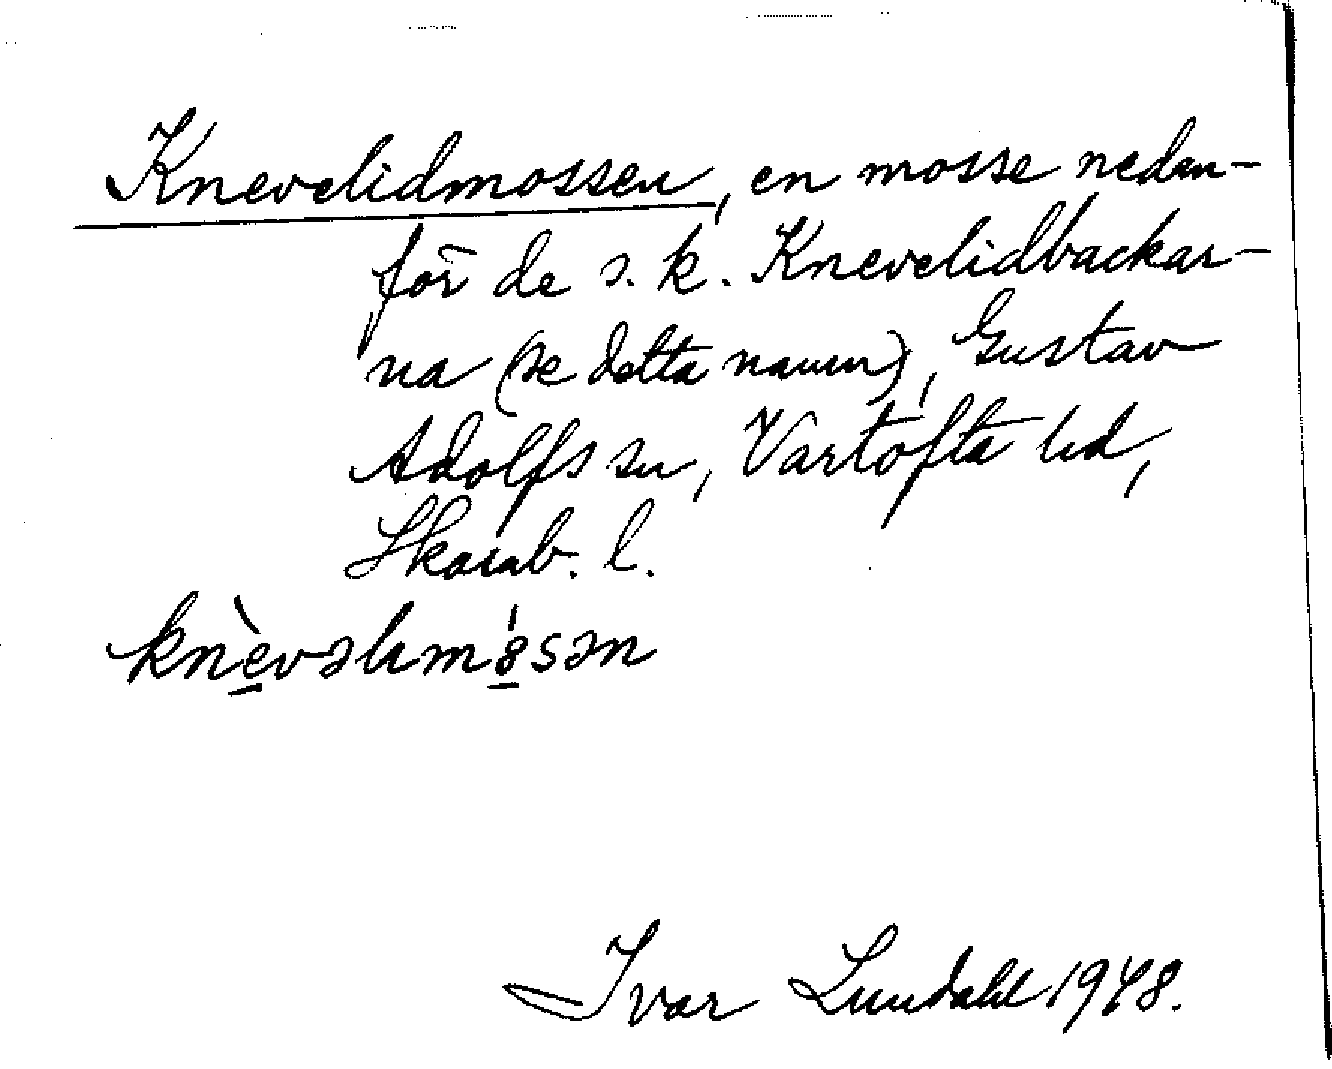 Knevelidmossen, en mosse neden-
för de s. k. Knevelidbackar-
na (se detta namn), Gustav
Adolfs sn, Vartofta hd,
Skarab. l.
knèvəlım8́sən
Ivar Lundahl 1948.